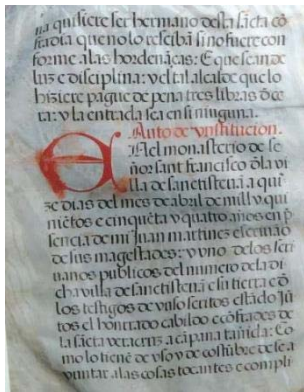 na quisiere ser hermano desta sācta cō
fradia que no lo rescibā si no fuere con
forme a las hordenāças: E que sean de
luz e disciplina: y el tal alcalde que lo
hiziere pague de pena tres libras ō ce
ra: y la entrada sea en si ninguna.
Auto de ynstitucion.
En el monasterio de se
ñor sant francisco ō la vi
lla de sanctistevā a qui
ze dias del mes de abril de mill y qui
niētos e cinquēta y quatro años en p̄
sencia de mi Juan martines escriuāo
de sus magestades: y vno de los scri
uanos publicos del numero de la di
cha villa de sanctistevā e su tierra e ō
los testigos de yuso scritos estādo jū
tos el honrrado cabildo e cōfrades de
la sācta veracruz a cāpana tañida: Co
mo lo tienē de vso y de costūbre de se a
yuntar a las cosas tocantes e compli